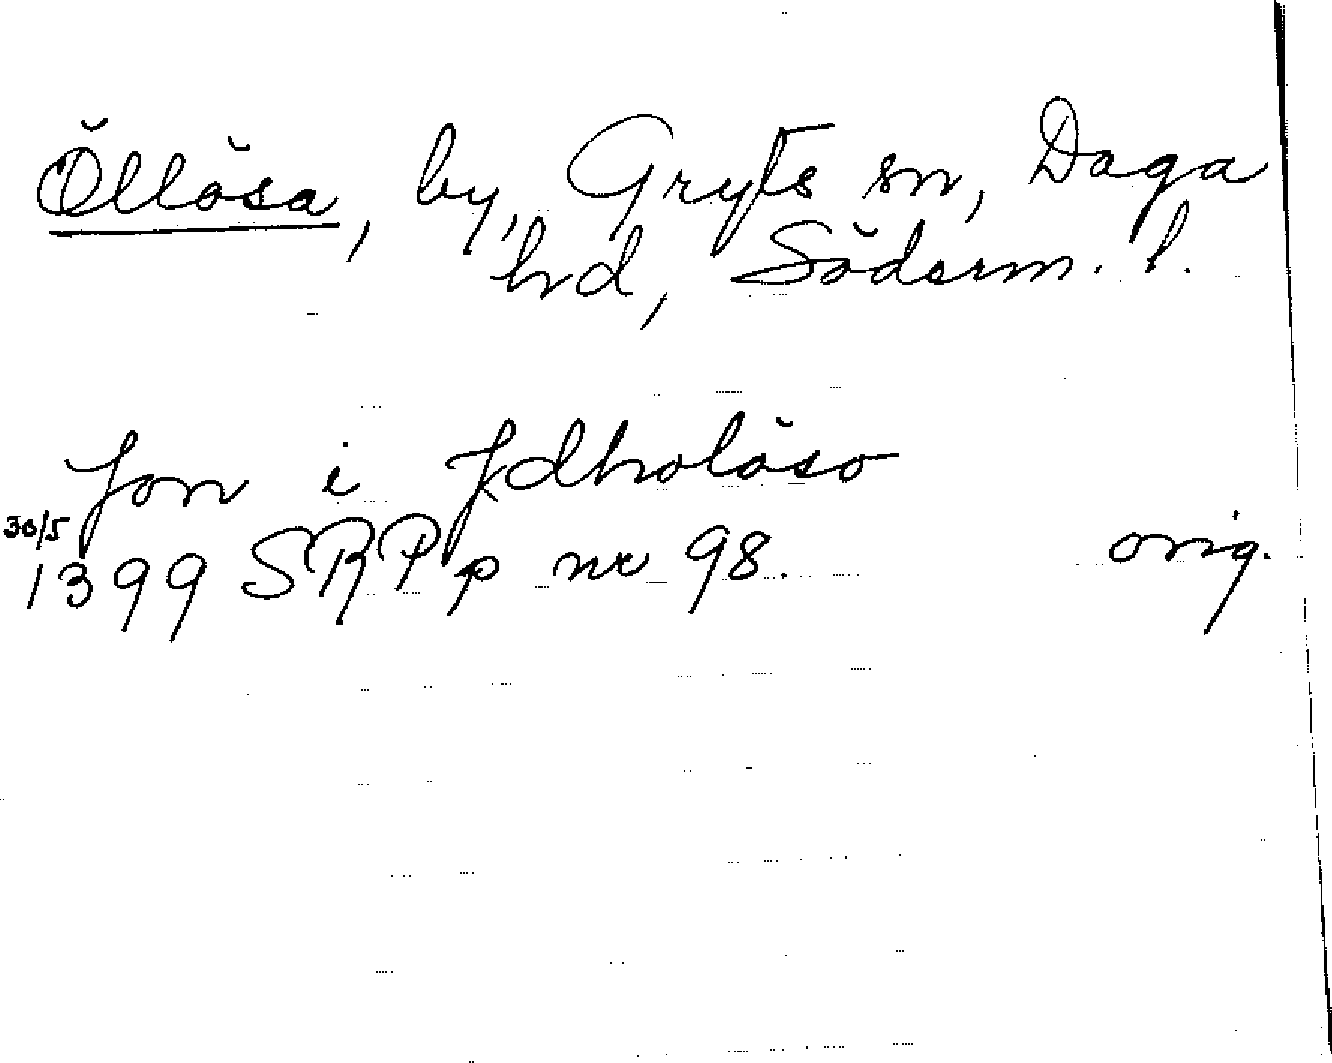 Öllösa, by, Gryts sn, Daga
hd, Söderm. l.
Jon i Jdholöso
30/5
1399 SRP p nr 98. orig.